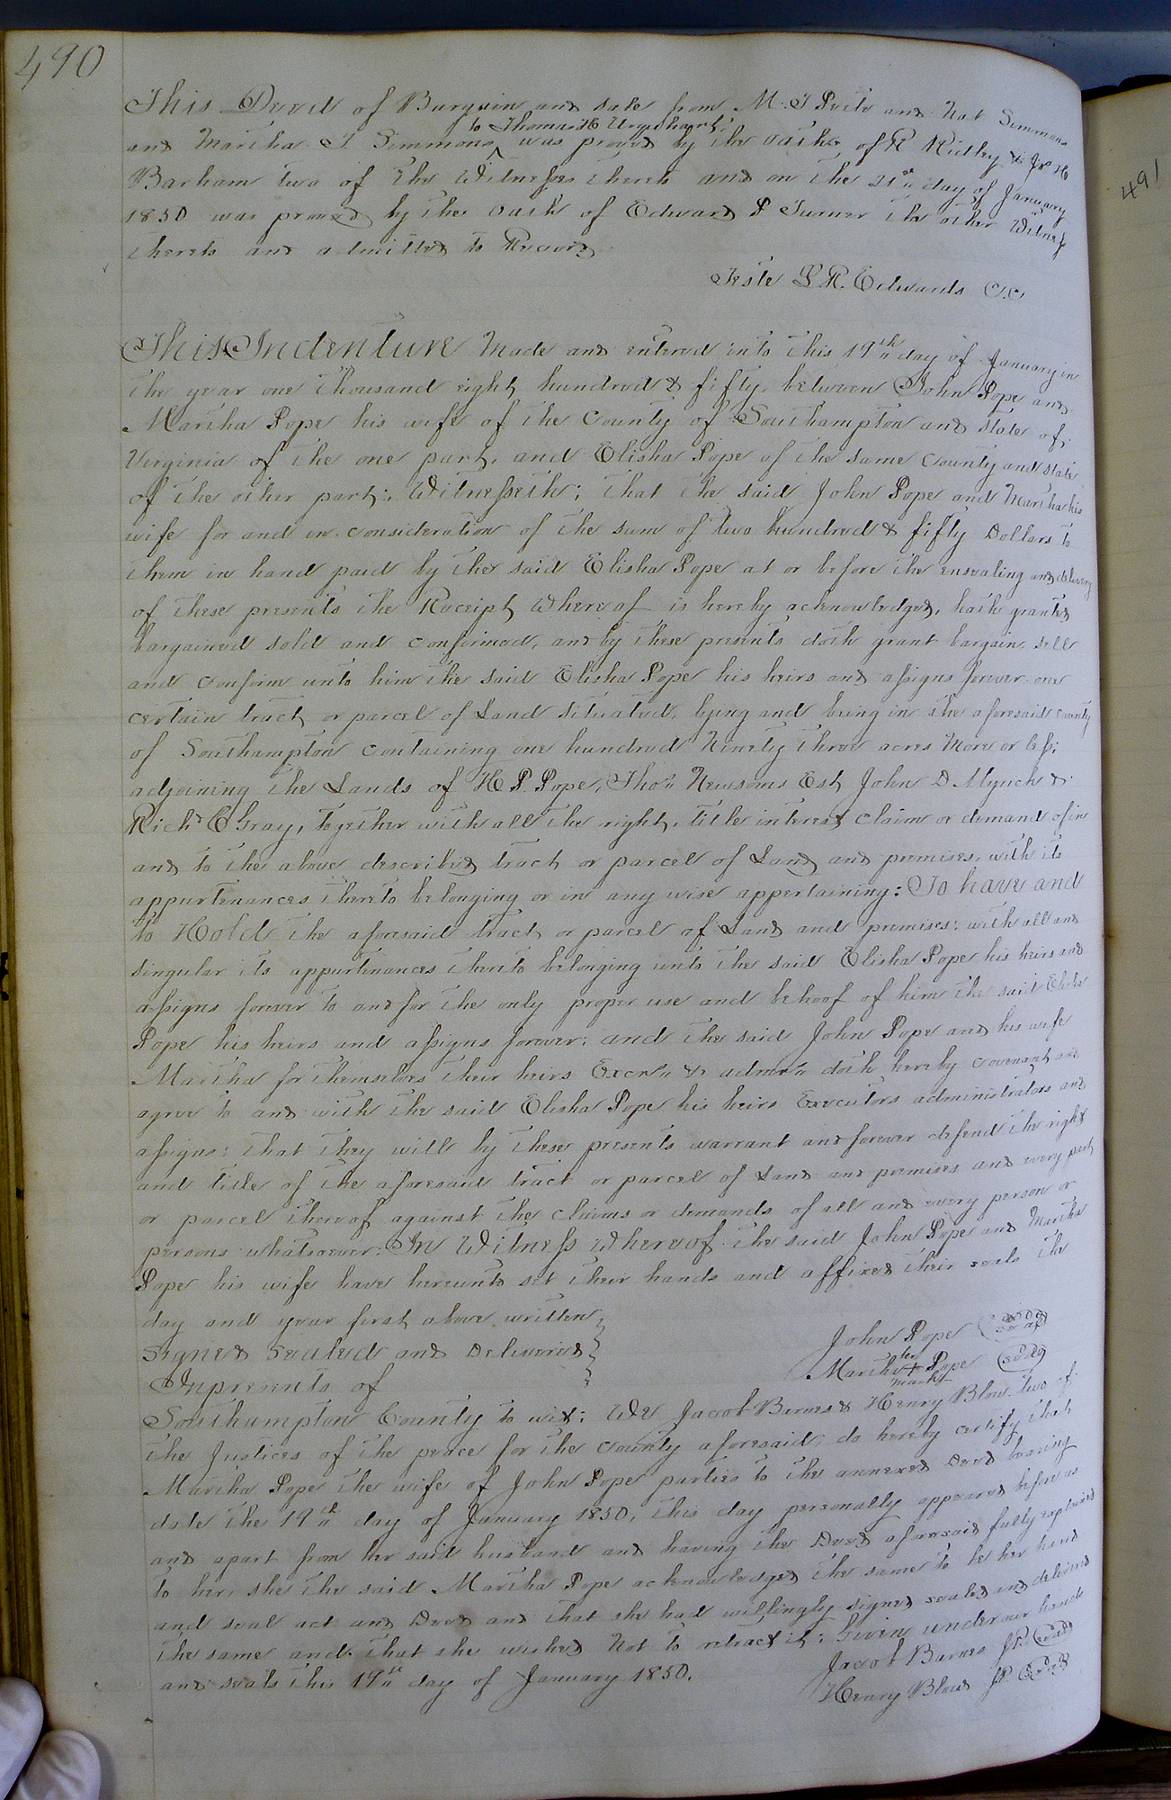 490
This Deed of Bargain and sale from M. T Prete and Nat Simmons
to Thomas H Urquhart
and Martha T Simmons ^ was proved by the oaths of R Ridley & Jos H
Barham two of the Witnesses thereto and on the 21st day of January
1850 was proved by the oath of Edward P Turner the other Witness
thereto and admitted to Record
Teste L R. Edwards C.C
This Indenture Made and entered into this 19th day of January in
the year one thousand eight hundred & fifty between John Pope and
Martha Pope his wife of the County of Southampton and State of
Virginia of the one part, and Elisha Pope of the same County and State
of the other part; Witnesseth; that the said John Pope and Martha his
wife for and in consideration of the sum of two hundred & fifty Dollars to
them in hand paid by the said Elisha Pope at or before the ensealing and delivery
of these presents the Receipt whereof is hereby acknowledged, hath granted
bargained sold and confirmed, and by these presents doth grant bargain sell
and confirm unto him the said Elisha Pope his heirs and assigns forever one
certain tract or parcel of Land Situated, lying and being in the aforesaid county
of Southampton containing one hundred Ninety three acres More or less;
adjoining the Lands of H P. Pope, Thos Newsoms Est, John D. Mynch &
Richd E Gray, together with all the right, title interest claim or demand of in
and to the above described tract or parcel of Land and premises with its
appurtenances thereto belonging or in any wise appertaining: To have and
to Hold the aforesaid tract or parcel of Land and premises; with all and
singular its appurtenances thereto belonging unto the said Elisha Pope his heirs and
assigns forever to and for the only proper use and behoof of him the said Elisha
Pope his heirs and assigns forever; and the said John Pope and his wife
Martha for themselves their heirs Excrs & admrs doth hereby covenant and
agree to and with the said Elisha Pope his heirs Executors administrators and
assigns: that they will by these presents warrant and forever defend the right
and title of the aforesaid tract or parcel of Land and premises and every part
or parcel thereof against the claims or demands of all and every person or
persons whatsoever: In Witness whereof the said John Pope and Martha
Pope his wife have hereunto set their hands and affixed their seals the
day and year first above written
Signed Sealed and Delivered John Pope (seal)
In presents of Martha + Pope (seal)
her
mark
Southampton County to wit: We Jacob Barnes & Henry Blow two of
the Justices of the peace for the county aforesaid, do hereby certify that
Martha Pope the wife of John Pope parties to the annexed Deed bearing
date the 19th day of January 1850, this day personally appeared before us
and apart from her said husband and having the Deed aforesaid fully explained
to her, she the said Martha Pope acknowledged the same to be her hand
and seal act and Deed and that she had willingly signed sealed and delivered
the same and that she wished Not to retract it; Given under our hands
and seals this 19th day of January 1850. Jacob Barnes JP. (seal)
Henry Blow JP (seal)
491